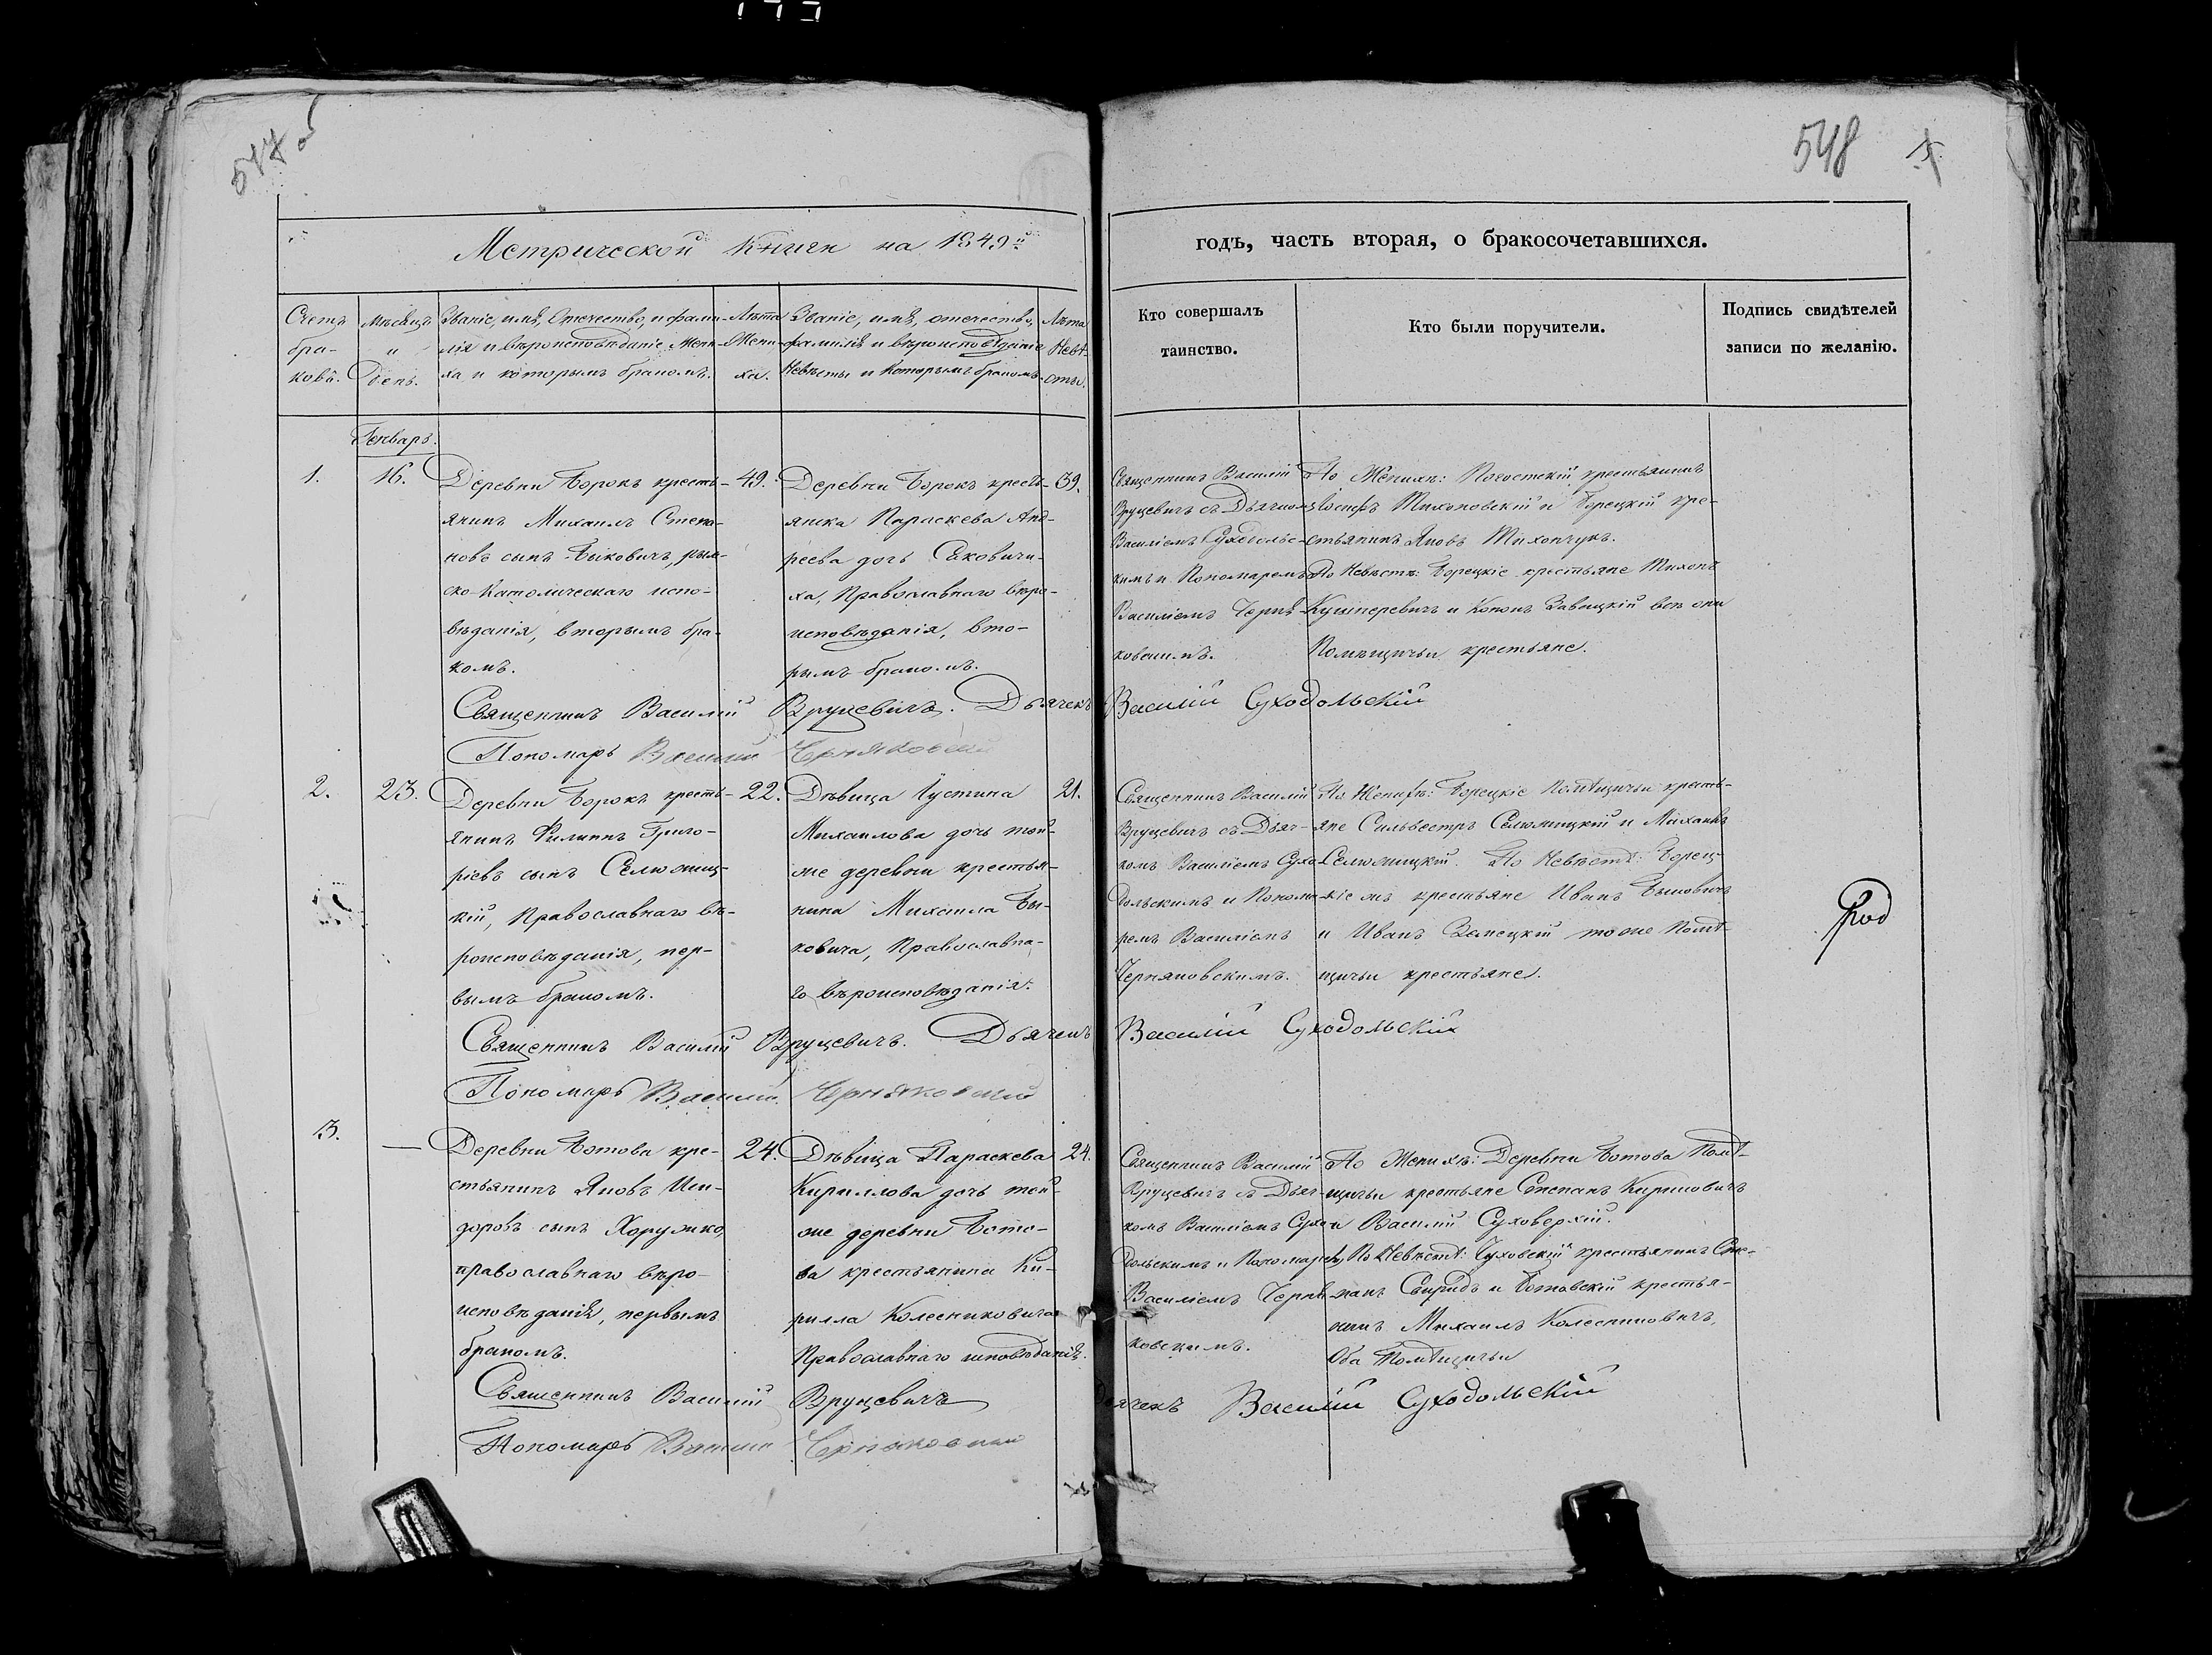 548
Метрической книги на 1849й
годъ, часть вторая, о бракосочетавшихся.
Счетъ браковъ.
Мѣсяцъ и день.
Званіе, имя, Отечество, и фамилія и вѣроисповѣданіе Жениха и которымъ бракомъ.
Лѣта Жениха.
Званіе, имя, отечество, фамилія и вѣроисповѣданіе Невѣсты и которымъ бракомъ.
Лѣта Невѣсты.
Кто совершалъ
таинство.
Кто были поручители.
Подпись свидѣтелей
записи по желанію.
Генварь.
1.
16.
Деревни Борокъ кресть-
янинъ Михаилъ Степа-
новъ сынъ Быковичъ, рим-
ско-Католическаго испо-
вѣданія, вторымъ бра-
комъ.
49.
Деревни Борокъ кресть-
янка Параскева Анд-
реева дочь Саковичи-
ха, Православнаго вѣро-
исповѣданія, вто-
рымъ бракомъ.
39.
Священникъ Василій
Вруцевичъ съ Дьячкомъ
Василіемъ Суходольс-
кимъ и Пономаремъ
Василіемъ Черня-
ковскимъ.
По Женихѣ: Погостскій крестьянинъ
Іосифъ Тихоновскій и Борецкій кре-
стьянинъ Яковъ Тихончукъ.
По Невѣстѣ: Борецкіе крестьяне Тихонъ
Кушнеревичъ и Кононъ Завацкій всѣ они
Помѣщичьи крестьяне.
Священникъ Василій Вруцевичъ. Дьячекъ Василій Суходольскій
Пономарь Василій Черняковскій
2.
23.
Деревни Борокъ кресть-
янинъ Филиппъ Григо-
ріевъ сынъ Селюжиц-
кій, Православнаго вѣ-
роисповѣданія, пер-
вымъ бракомъ.
22.
Дѣвица Іустина
Михаилова дочь той-
же деревни крестья-
нина Михаила Бы-
ковича, Православна-
го вѣроисповѣданія.
21.
Священникъ Василій
Вруцевичъ съ Дьяч-
комъ Василіемъ Сухо-
дольскимъ и Понома-
ремъ Василіемъ
Черняковскимъ.
По Женихѣ: Борецкіе Помѣщичьи кресть-
яне Сильвестръ Селюжицкій и Михаилъ
Селюжицкій. По Невѣстѣ: Борец-
кіе жъ крестьяне Иванъ Быковичъ
и Иванъ Замецкій тоже Помѣ-
щичьи крестьяне.
Священникъ Василій Вруцевичъ. Дьячекъ Василій Суходольскій
Пономарь Василій Черняковскій
3.
—
Деревни Ботова кре-
стьянинъ Яковъ Иси-
доровъ сынъ Хорунжо,
православнаго вѣро-
исповѣданія, первымъ
бракомъ.
24.
Дѣвица Параскева
Кириллова дочь той-
же деревни Бото-
ва крестьянина Ки-
рилла Колесниковича
Православнаго исповѣданія.
24.
Священникъ Василій
Вруцевичъ съ Дьяч-
комъ Василіемъ Сухо-
дольскимъ и Пономаремъ
Василіемъ Черня-
ковскимъ.
По Женихѣ: Деревни Ботова Помѣ-
щичьи крестьяне Степанъ Кириковичъ
и Василій Суховерхій.
По Невѣстѣ: Чуховскій крестьянинъ Сте-
панъ Свиридъ и Ботовскій крестья-
нинъ Михаилъ Колесниковичъ,
Оба Помѣщичьи
Священникъ Василій Вруцевичъ Дьячекъ Василій Суходольскій
Пономарь Василій Черняковскій